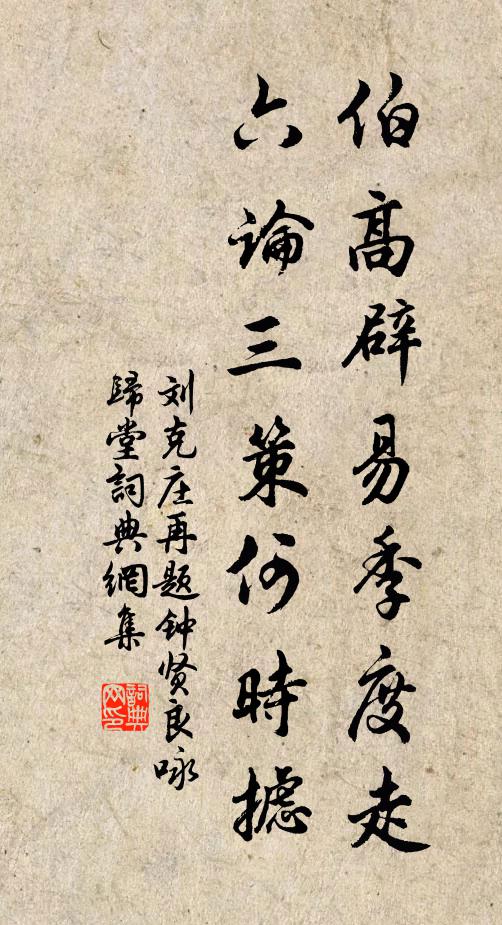 伯高辟易季度走
六論三策何時攄
刘克庄再题钟贤良咏
歸堂詞典網集
詞典网印